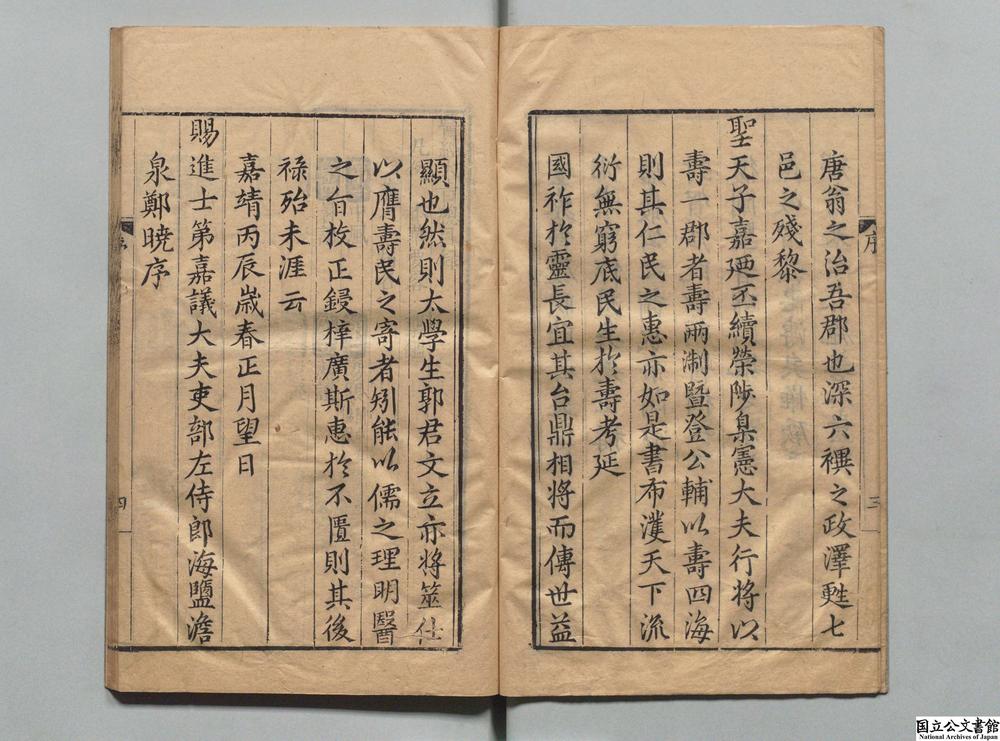 唐翁之治吾郡也深六禩之政澤甦七
邑之殘黎
聖天子嘉廼丕績榮陟臬憲大夫行將以
壽一郡者壽兩淛暨登公輔以壽四海
則其仁民之惠亦如是書布濩天下流
衍無窮底民生於壽考延
國祚於靈長宜其台鼎相將而傳世益
序
三
顯也然則太學生郭君文立亦將筮仕
以膺壽民之寄者矧能以儒之理明醫
之旨校正鋟梓廣斯惠於不匱則其後
祿殆未涯云
嘉靖丙辰歲春正月望日
賜進士第嘉議大夫吏部左侍郎海鹽澹
泉鄭曉序
序
四
国立公文書館
National Archives of Japan